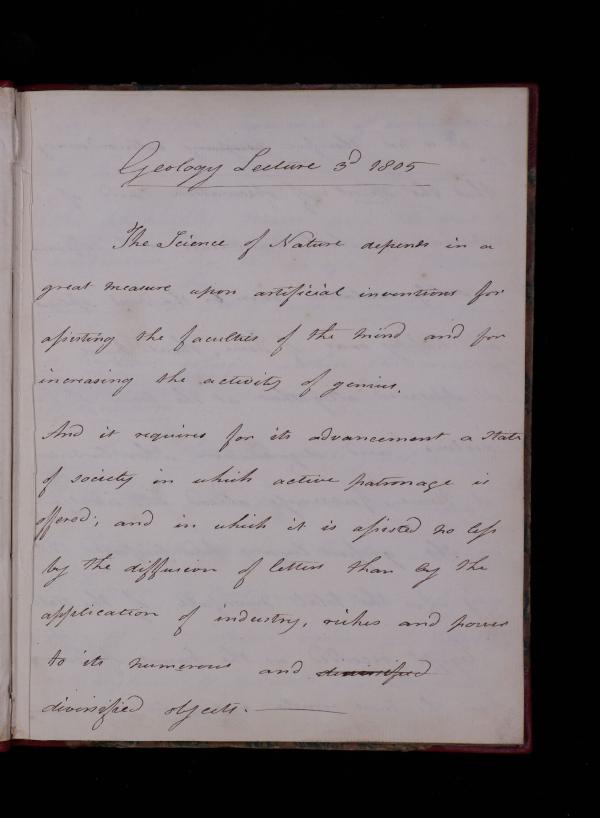 Geology Lecture 3d 1805
The Science of Nature depends in a
great measure upon artificial inventions for
assisting the faculties of the mind and for
increasing the activity of genius.
And it requires for its advancement a State
of society in which active patronage is
offered; and in which it is assisted no less
by the diffusion of letters than by the
application of industry, riches and power
to its numerous and diversified
diversified objects.